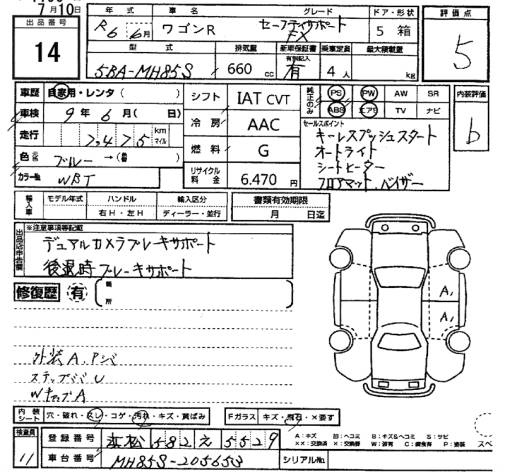 7月10日
出品番号 14
年式 R6年6月
車名 ワゴンR
グレード セーフティサポート FX
ドア・形状 5 箱
評価点 5
型式 5BA-MH85S
排気量 660 cc
新車保証書 有 無記入
乗車定員 4人
最大積載量 kg
車歴 自家用・レンタ ( )
車検 9年 6月 ( 日)
走行 7,475 km マイル
色 ブルー → (色番 )
カラーNo. WBT
シフト IAT CVT
冷房 AAC
燃料 G
リサイクル料金 6.470 円
純正のみ PS PW AW SR
ABS エアB TV ナビ
セールスポイント
キーレスプッシュスタート
オートライト
シートヒーター
フロアマット、バイザー
内装評価 b
輸入車 モデル年式 年
ハンドル 右H・左H
輸入区分 ディーラー・並行
書類有効期限 月 日迄
出品店申告欄 ※注意事項等記載
デュアルカメラブレーキサポート
後退時ブレーキサポート
修復歴 有 箇所
外装A、Pジミ
ステップジミU
WキップA
A₁
A₁
内装シート 穴・破れ・スレ・コゲ・汚れ・キズ・黄ばみ
Fガラス キズ・飛石・X要す
検査員 11
登録番号 浜松 582 え 5529
車台番号 MH85S-205653
シリアルNo.